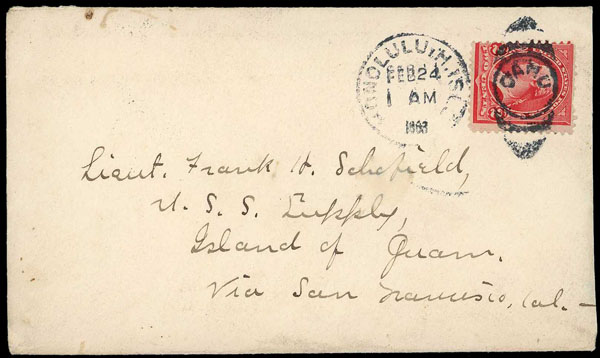 HONOLULU, H. ISL.
FEB 24
1 AM
OAHU
Lieut. Frank H. Schofield,
U. S. S. Supply,
Island of Guam.
Via San Francisco, Cal.